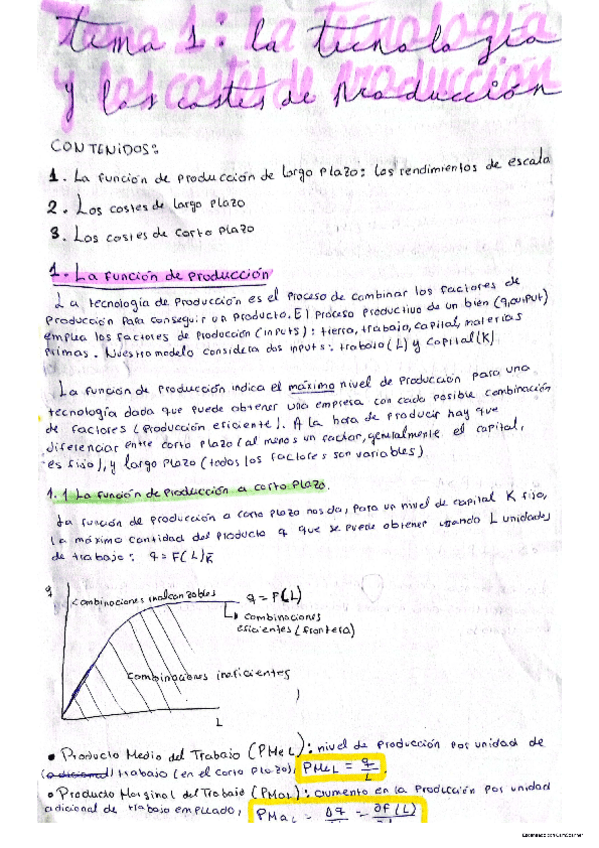 Tema 1: La tecnología
y los costes de producción
CONTENIDOS:
1. La función de producción de largo plazo: los rendimientos de escala
2. Los costes de largo plazo
3. Los costes de corto plazo
1. La función de producción
La tecnología de producción es el proceso de combinar los factores de
producción para conseguir un producto. El proceso productivo de un bien (q, output)
emplea los factores de producción (inputs): tierra, trabajo, capital, materias
primas. Nuestro modelo considera dos inputs: trabajo (L) y capital (K)
La función de producción indica el máximo nivel de producción para una
tecnología dada que puede obtener una empresa con cada posible combinación
de factores (producción eficiente). A la hora de producir hay que
diferenciar entre corto plazo (al menos un factor, generalmente el capital,
es fijo), y largo plazo (todos los factores son variables)
1.1 La función de producción a corto plazo.
La función de producción a corto plazo nos da, para un nivel de capital K fijo,
la máxima cantidad del producto q que se puede obtener usando L unidades
de trabajo: q = F(L)K̄
q
combinaciones inalcanzables
q = F(L)
combinaciones
eficientes (frontera)
combinaciones ineficientes
L
• Producto Medio del Trabajo (PMeL): nivel de producción por unidad de
(adicional) trabajo (en el corto plazo), PMeL = q/L.
• Producto Marginal del Trabajo (PMaL): aumento en la producción por unidad
adicional de trabajo empleado, PMaL = Δq = ∂f(L)